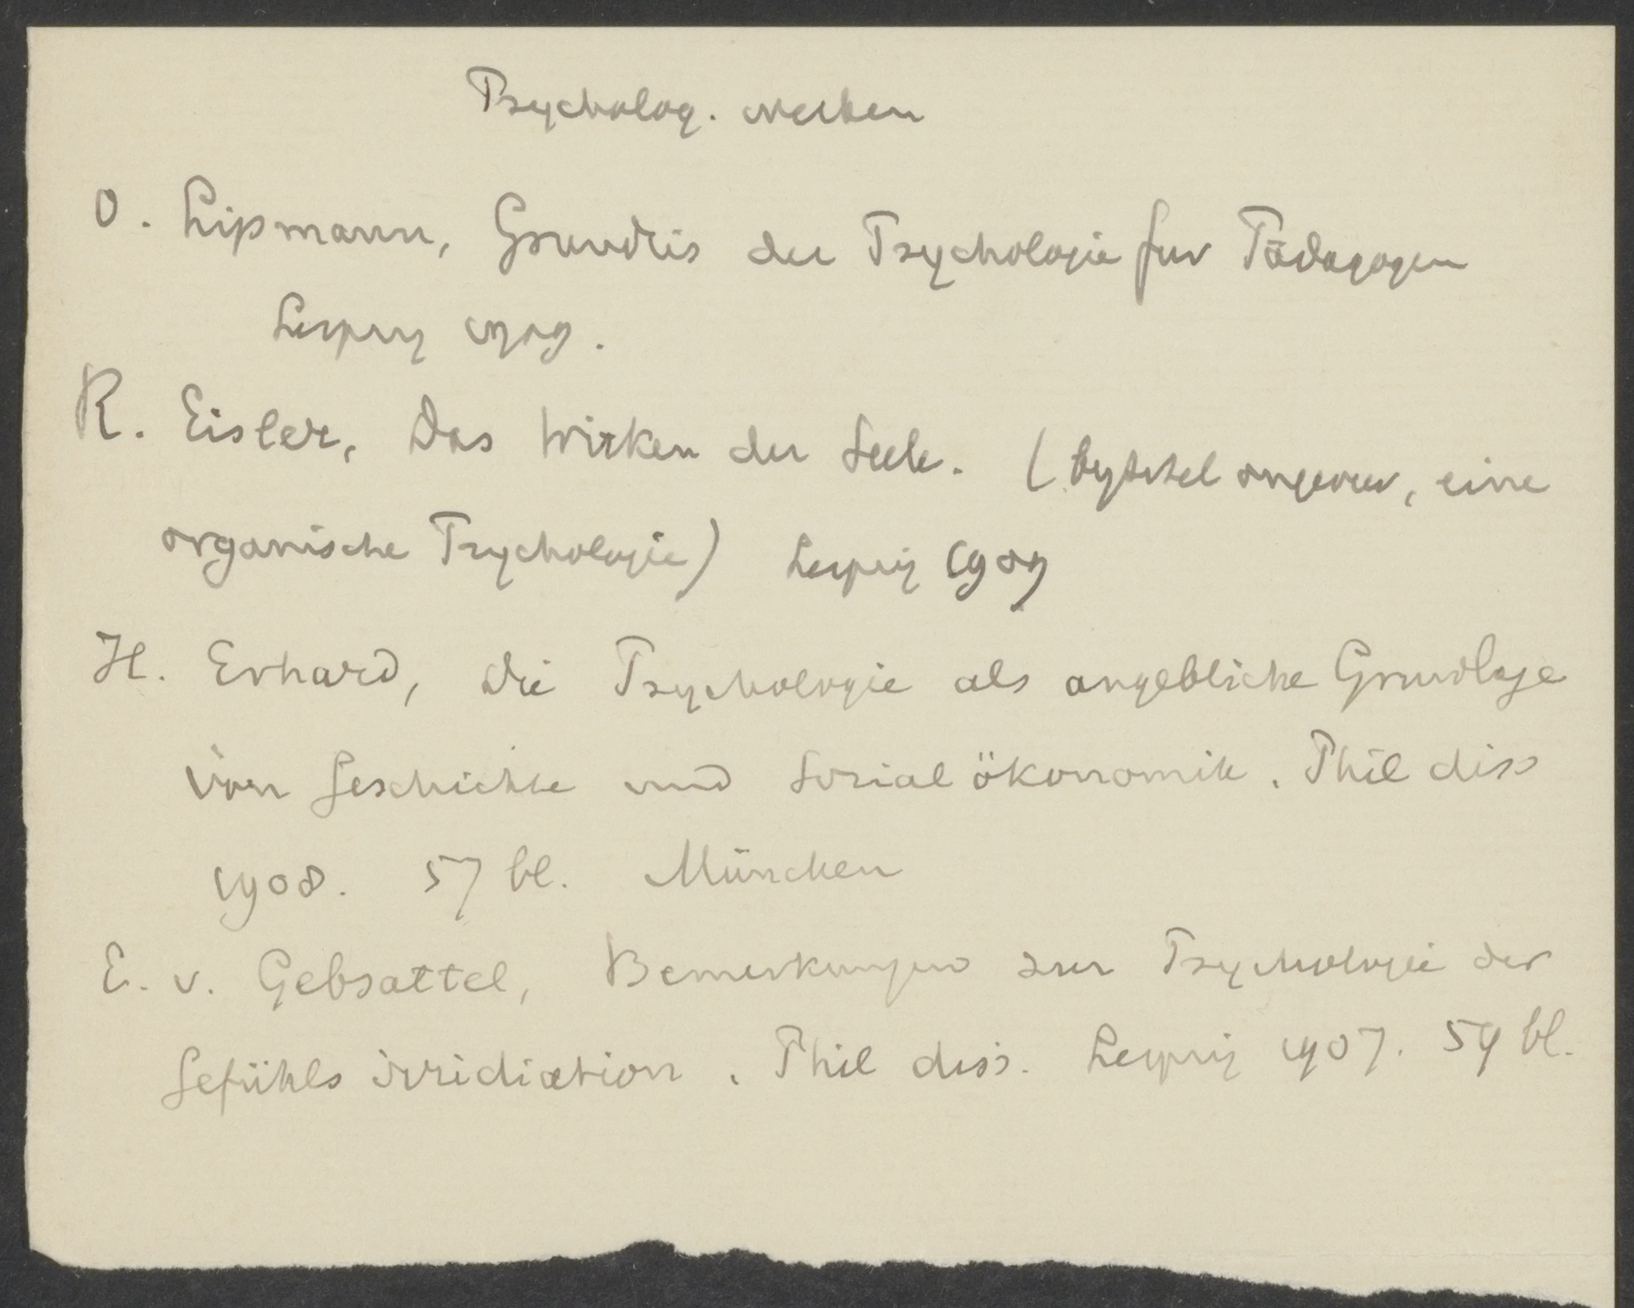 Psycholog. werken
O. Lipmann, Grundris der Psychologie fur Pädagogen
Leipzig 1909.
R. Eisler, Das Wirken der Seele. (bytitel ongeveer, eine
organische Psychologie) Leipzig 1909
H. Erhard, Die Psychologie als angebliche Grundlage
von Geschichte und Sozialökonomik. Phil diss
1908. 57 bl. München
E. v. Gebsattel, Bemerkungen zur Psychologie der
Gefühls irridiation. Phil diss. Leipzig 1907. 59 bl.